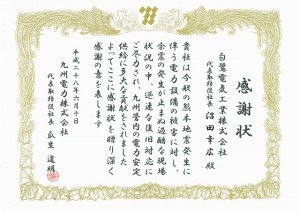 感謝状
白鷺電気工業株式会社
代表取締役社長 沼田幸広 殿
貴社は今般の熊本地震発生に
伴う電力設備の被害に対し、
余震の発生が止まぬ過酷な現場
状況の中、迅速な復旧対応に
ご尽力され、九州管内の電力安定
供給に多大な貢献をされました
よってここに感謝状を贈り深く
感謝の意を表します
平成二十八年六月十日
九州電力株式会社
代表取締役社長 瓜生道明